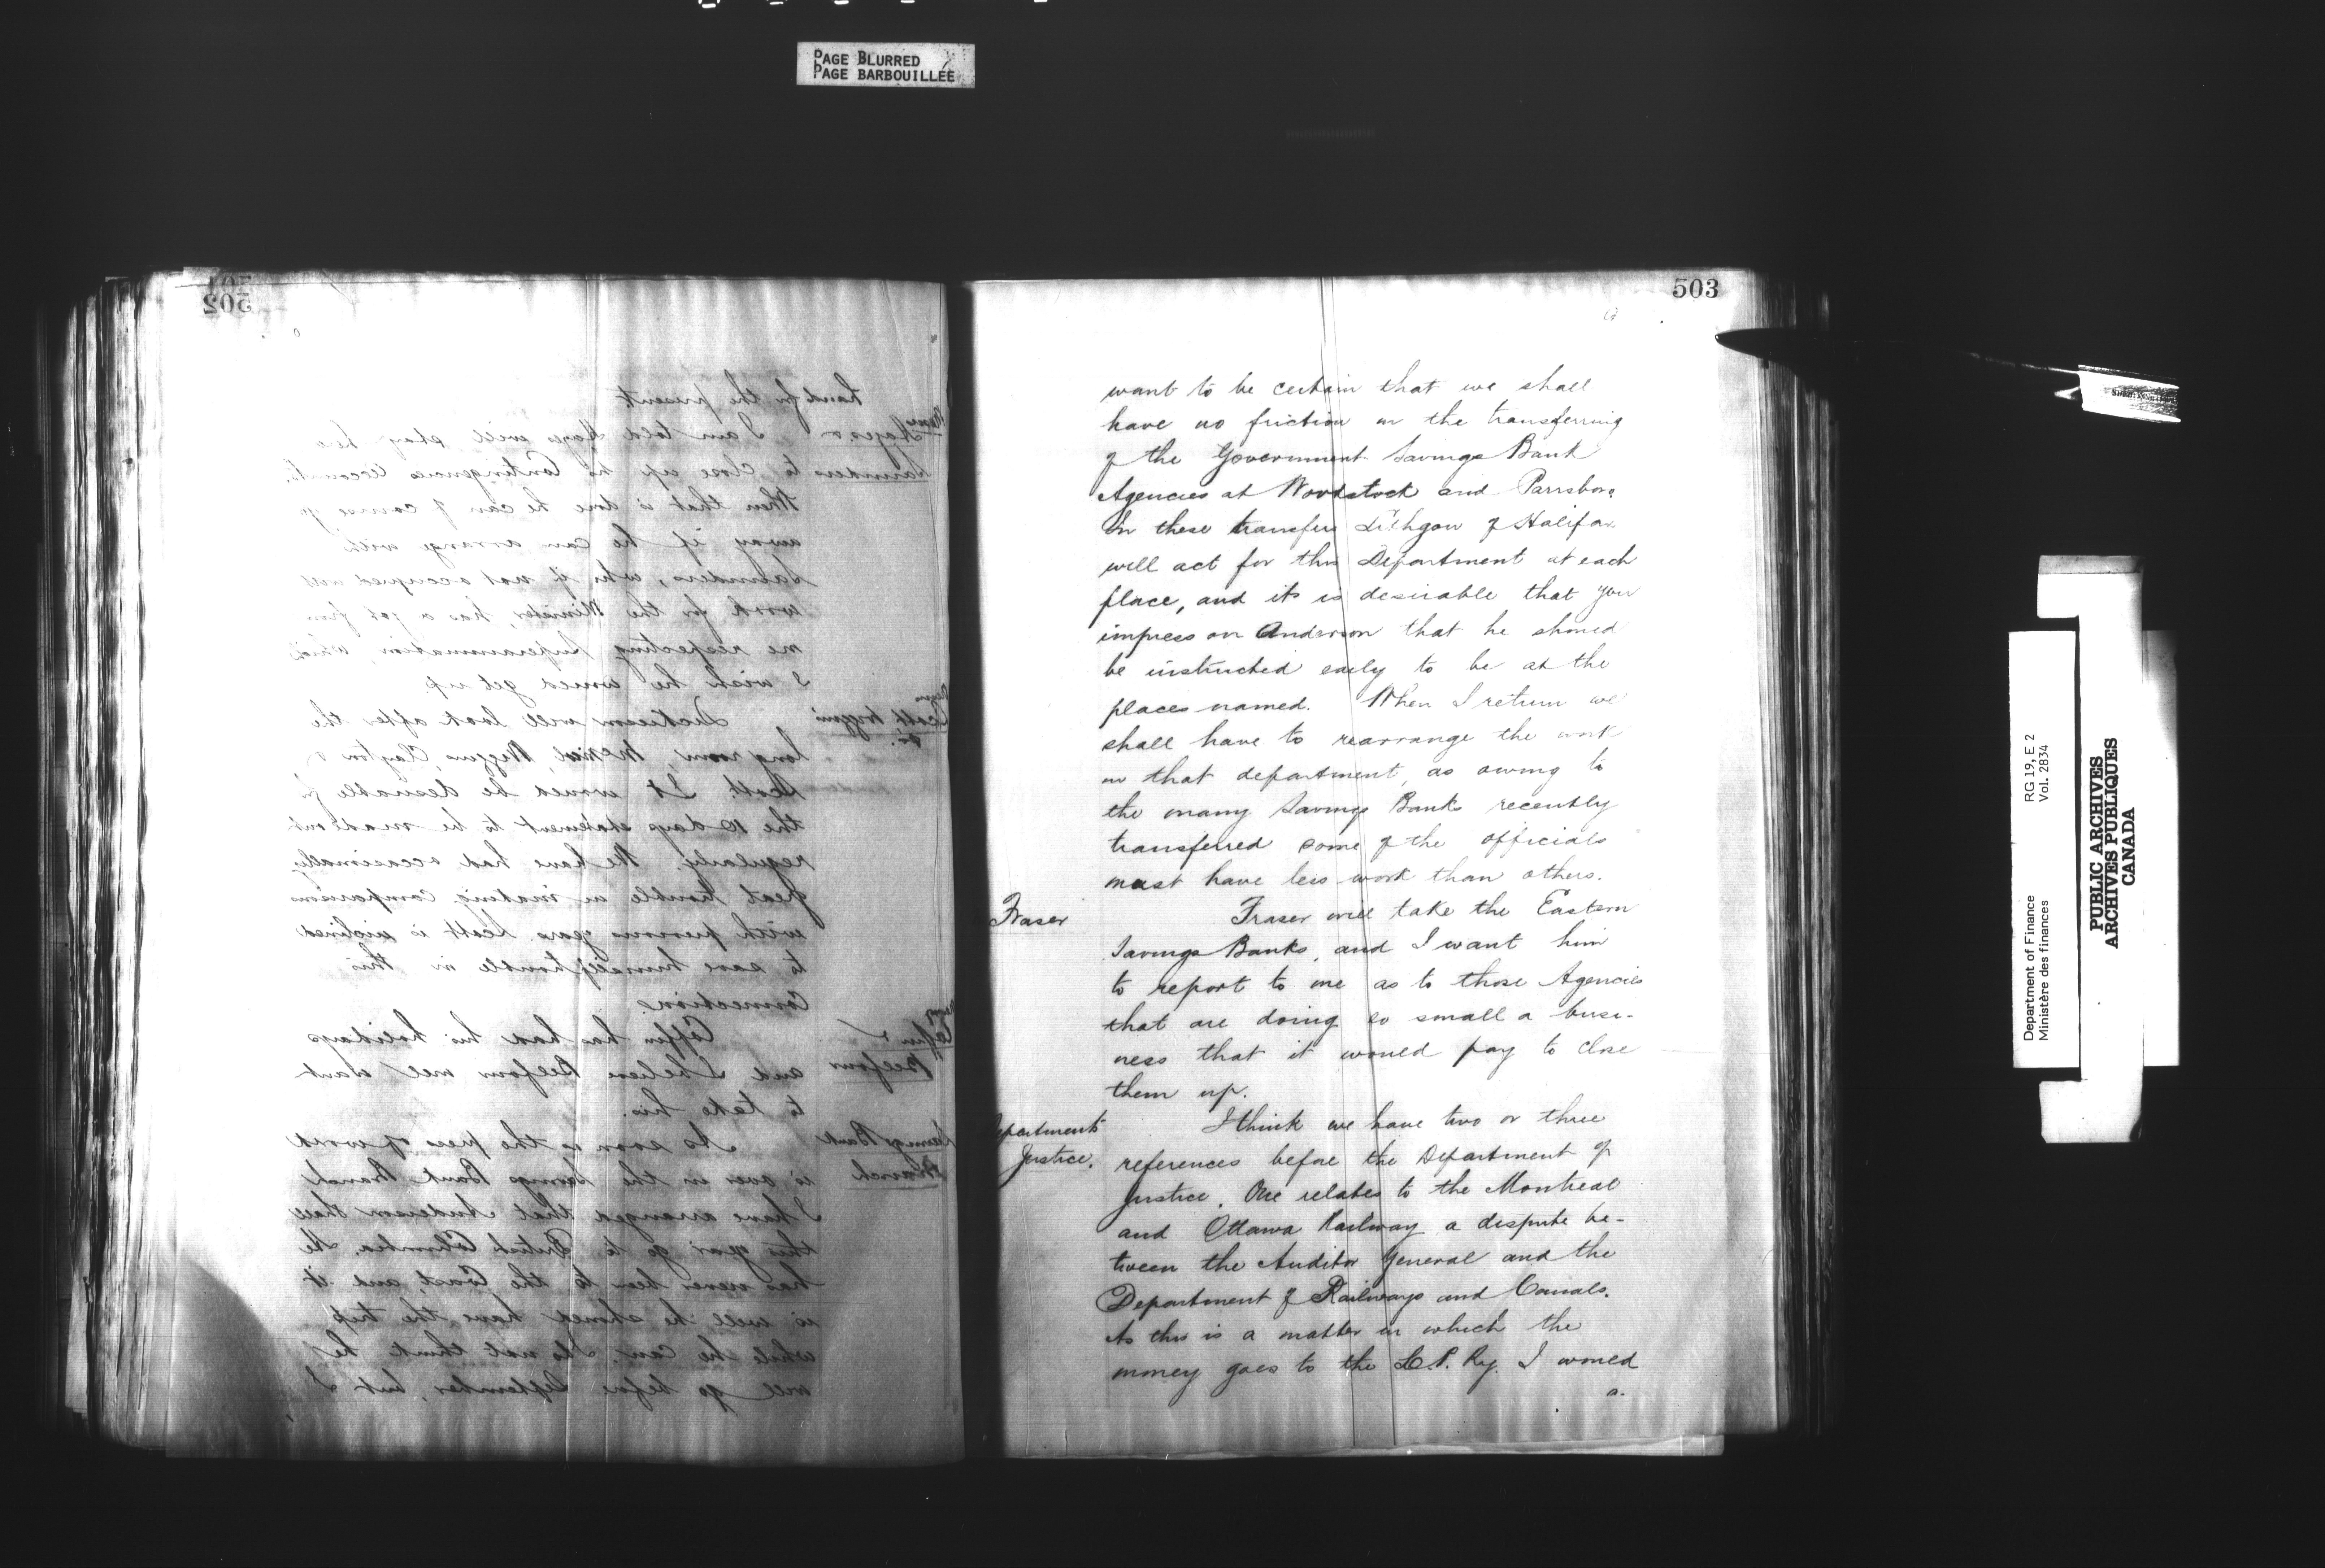 PAGE BLURRED
PAGE BARBOUILLÉE
502
hand for the present.
Hayes &
Saunders
I am told Hayes will stay here
to close up the Contingencies accounts.
When that is done he can of course go
away if he can arrange with
Saunders, who if not occupied with
work for the Minister, has a job from
me respecting Superannuation, which
I wish he would get up.
Scott Wiggins
&c.
Dickieson will look after the
long room, Wiggins, Clayton &
Scott. It would be desirable for
the 10 days statement to be made out
regularly. We have had occasionally
great trouble in making comparisons
with previous years. Scott is inclined
to save himself trouble in this
connection.
Coffin &
Belfour
Coffin has had his holidays
and I believe Belfour will want
to take his.
Savings Bank
Branch
As soon as the press of work
is over in the Savings Bank Branch
I have arranged that Anderson shall
this year go to British Columbia. He
has never been to the Coast, and it
is well he should have the trip
while he can. I do not think he
will go before September, but I
503
want to be certain that we shall
have no friction in the transferring
of the Government Savings Bank
Agencies at Woodstock and Parrsboro.
In these transfers Lithgow of Halifax
will act for this Department at each
place, and it is desirable that you
impress on Anderson that he should
be instructed early to be at the
places named. When I return we
shall have to rearrange the work
in that department, as owing to
the many Savings Banks recently
transferred some of the officials
must have less work than others.
Fraser
Fraser will take the Eastern
Savings Banks, and I want him
to report to me as to those Agencies
that are doing so small a busi-
ness that it would pay to close
them up.
Department
Justice.
I think we have two or three
references before the Department of
Justice. One relates to the Montreal
and Ottawa Railway, a dispute be-
tween the Auditor General and the
Department of Railways and Canals.
As this is a matter in which the
money goes to the C.P. Ry. I would
a.
Department of Finance
Ministère des finances
RG 19, E 2
Vol. 2834
PUBLIC ARCHIVES
ARCHIVES PUBLIQUES
CANADA